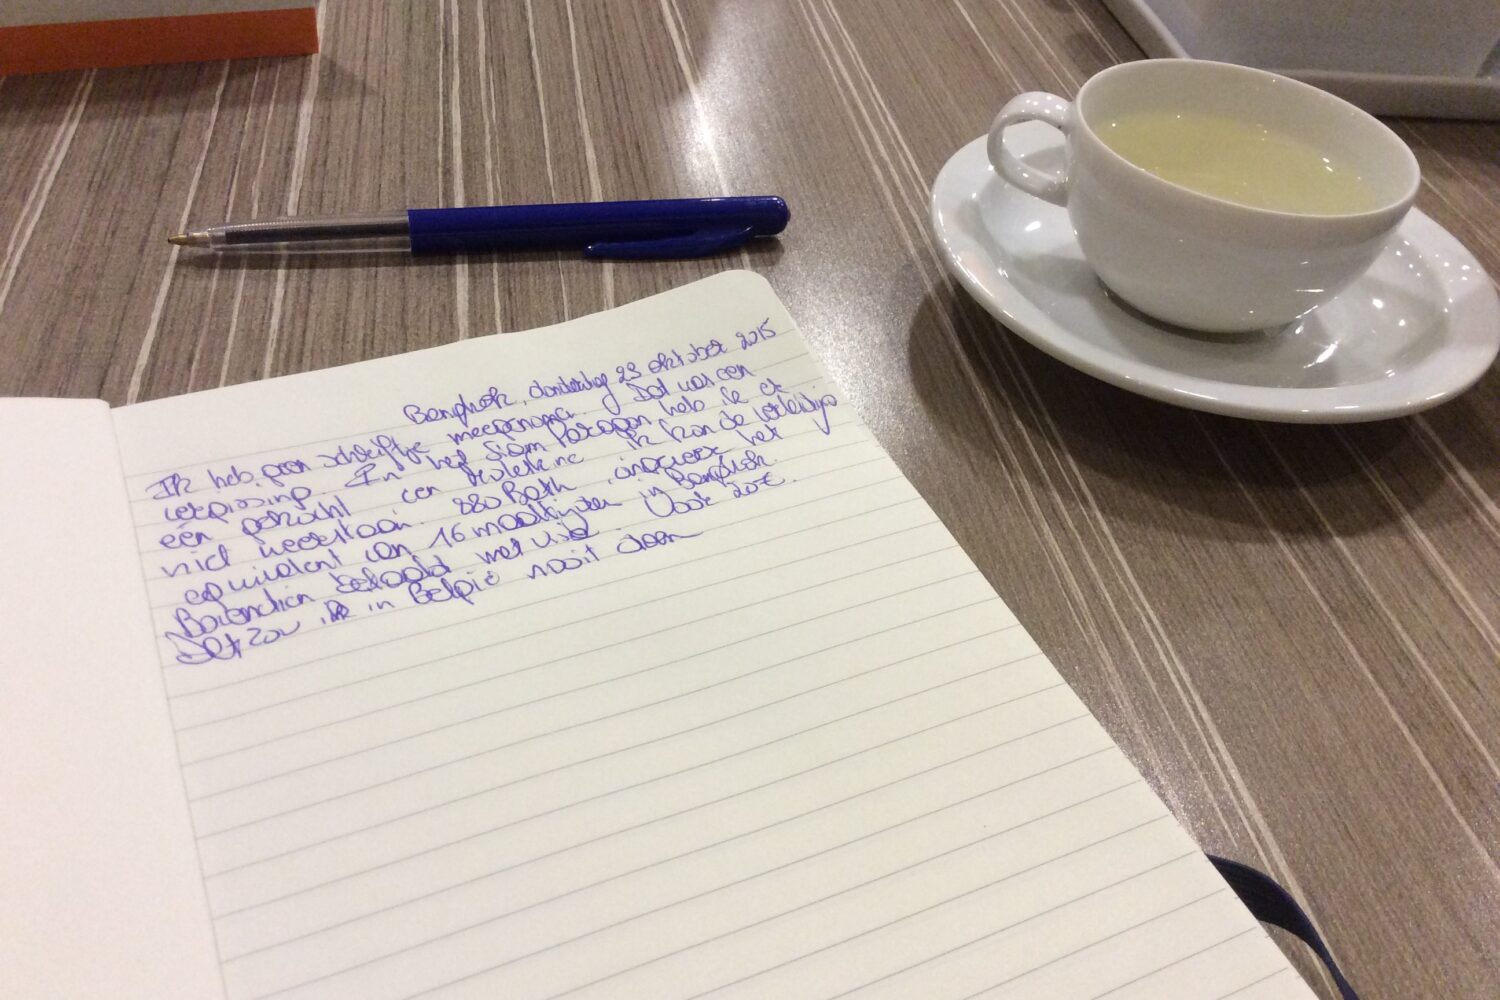 Bangkok, donderdag 23 oktober 2015
Ik heb geen schriftje meegenomen. Dat was een
vergissing. In het Siam Paragon heb ik er
één gekocht een Moleskine. Ik kon de verleiding
niet weerstaan. 880 Bath, ongeveer het
equivalent van 16 maaltijden in Bangkok.
Bovendien betaald met visa. Voor 20€.
Dat zou ik in België nooit doen